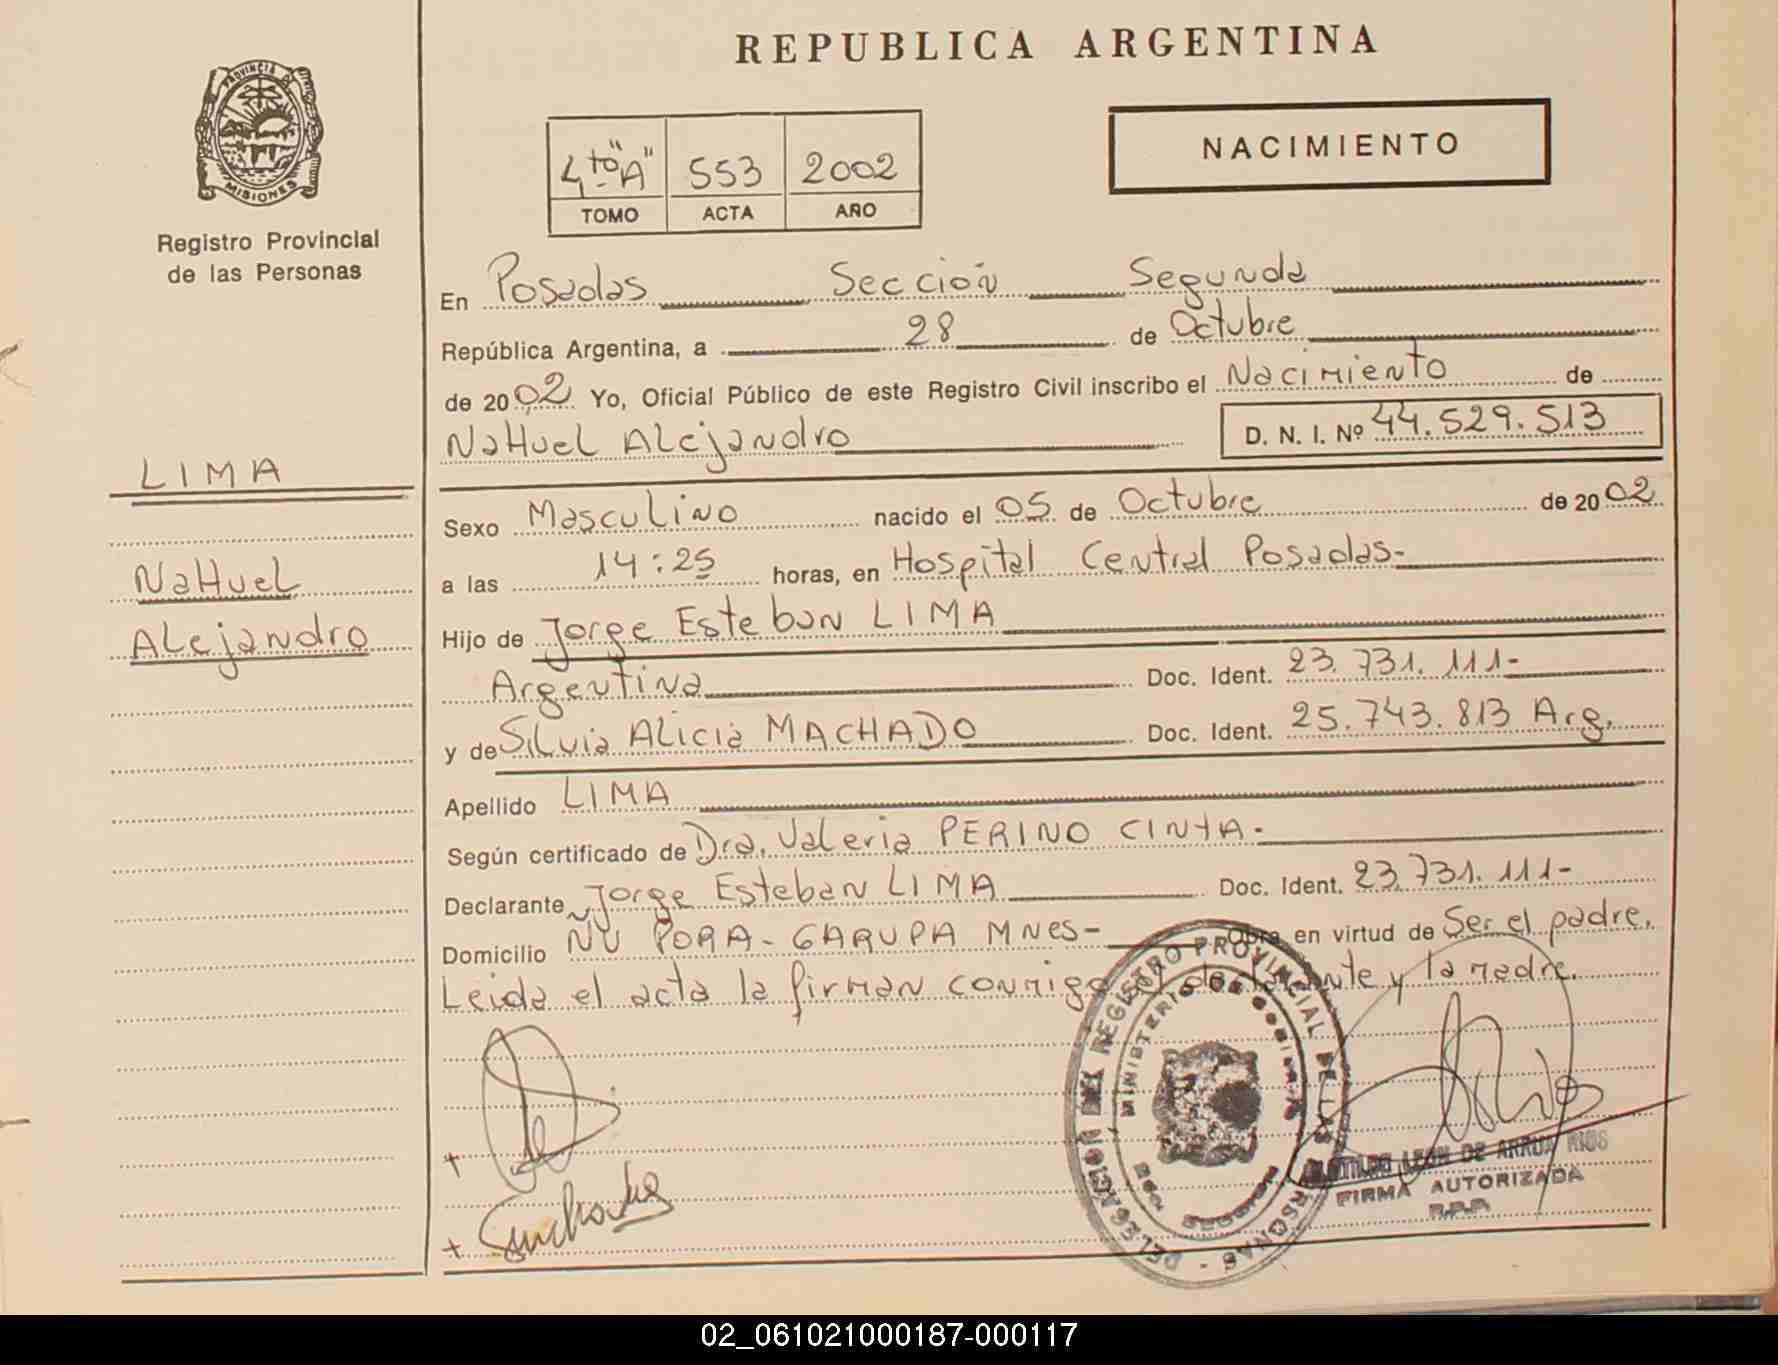 REPUBLICA ARGENTINA
PROVINCIA DE
MISIONES
Registro Provincial
de las Personas
NACIMIENTO
4to "A" 553 2002
TOMO ACTA AÑO
En Posadas Sección Segunda
República Argentina, a 28 de Octubre
de 2002 Yo, Oficial Público de este Registro Civil inscribo el Nacimiento de
Nahuel Alejandro D. N. I. Nº 44.529.513
LIMA
Nahuel
Alejandro
Sexo Masculino nacido el 05 de Octubre de 2002
a las 14:25 horas, en Hospital Central Posadas-
Hijo de Jorge Esteban LIMA
Argentina Doc. Ident. 23.731.111-
y de Silvia Alicia MACHADO Doc. Ident. 25.743.813 Arg.
Apellido LIMA
Según certificado de Dra. Valeria PERINO CINTA-
Declarante Jorge Esteban LIMA Doc. Ident. 23.731.111-
Domicilio ÑU PORA - GARUPA Mnes- Obra en virtud de Ser el padre.
Leida el acta la firman conmigo el declarante y la madre.
DELEGACION DEL REGISTRO PROVINCIAL DE LAS PERSONAS
MINISTERIO DE GOBIERNO
LEON DE ARRUA RIOS
FIRMA AUTORIZADA
R.P.P.
02_061021000187-000117